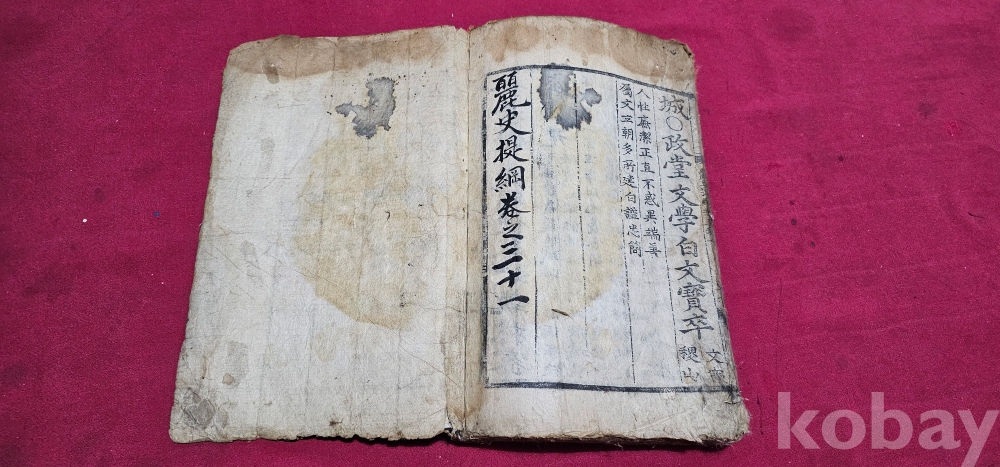 城○政堂文學白文寶卒
文寶
稷山
人性廉潔正直不惑異端善
屬文立朝多所建白謚忠簡
麗史提綱卷之二十一
kobay